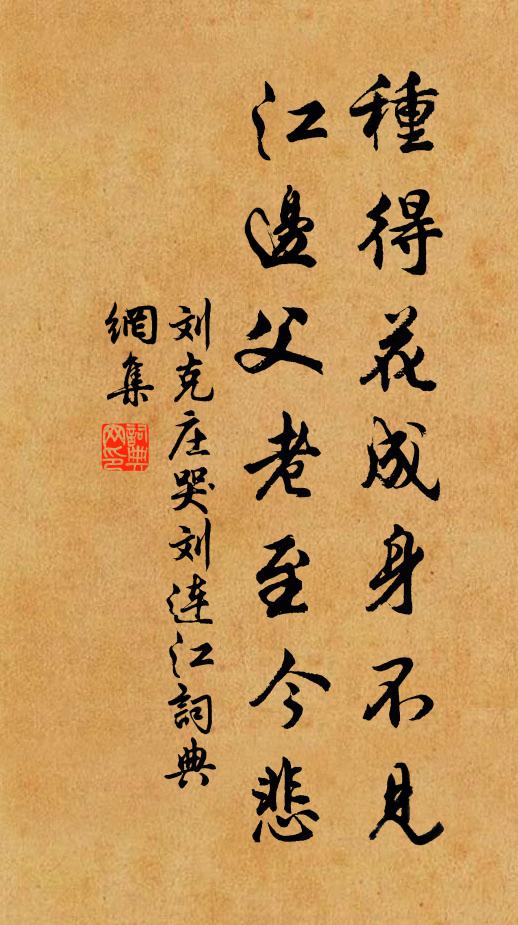 種得花成身不見
江邊父老至今悲
刘克庄哭刘连江詞典
網集
詞典網印